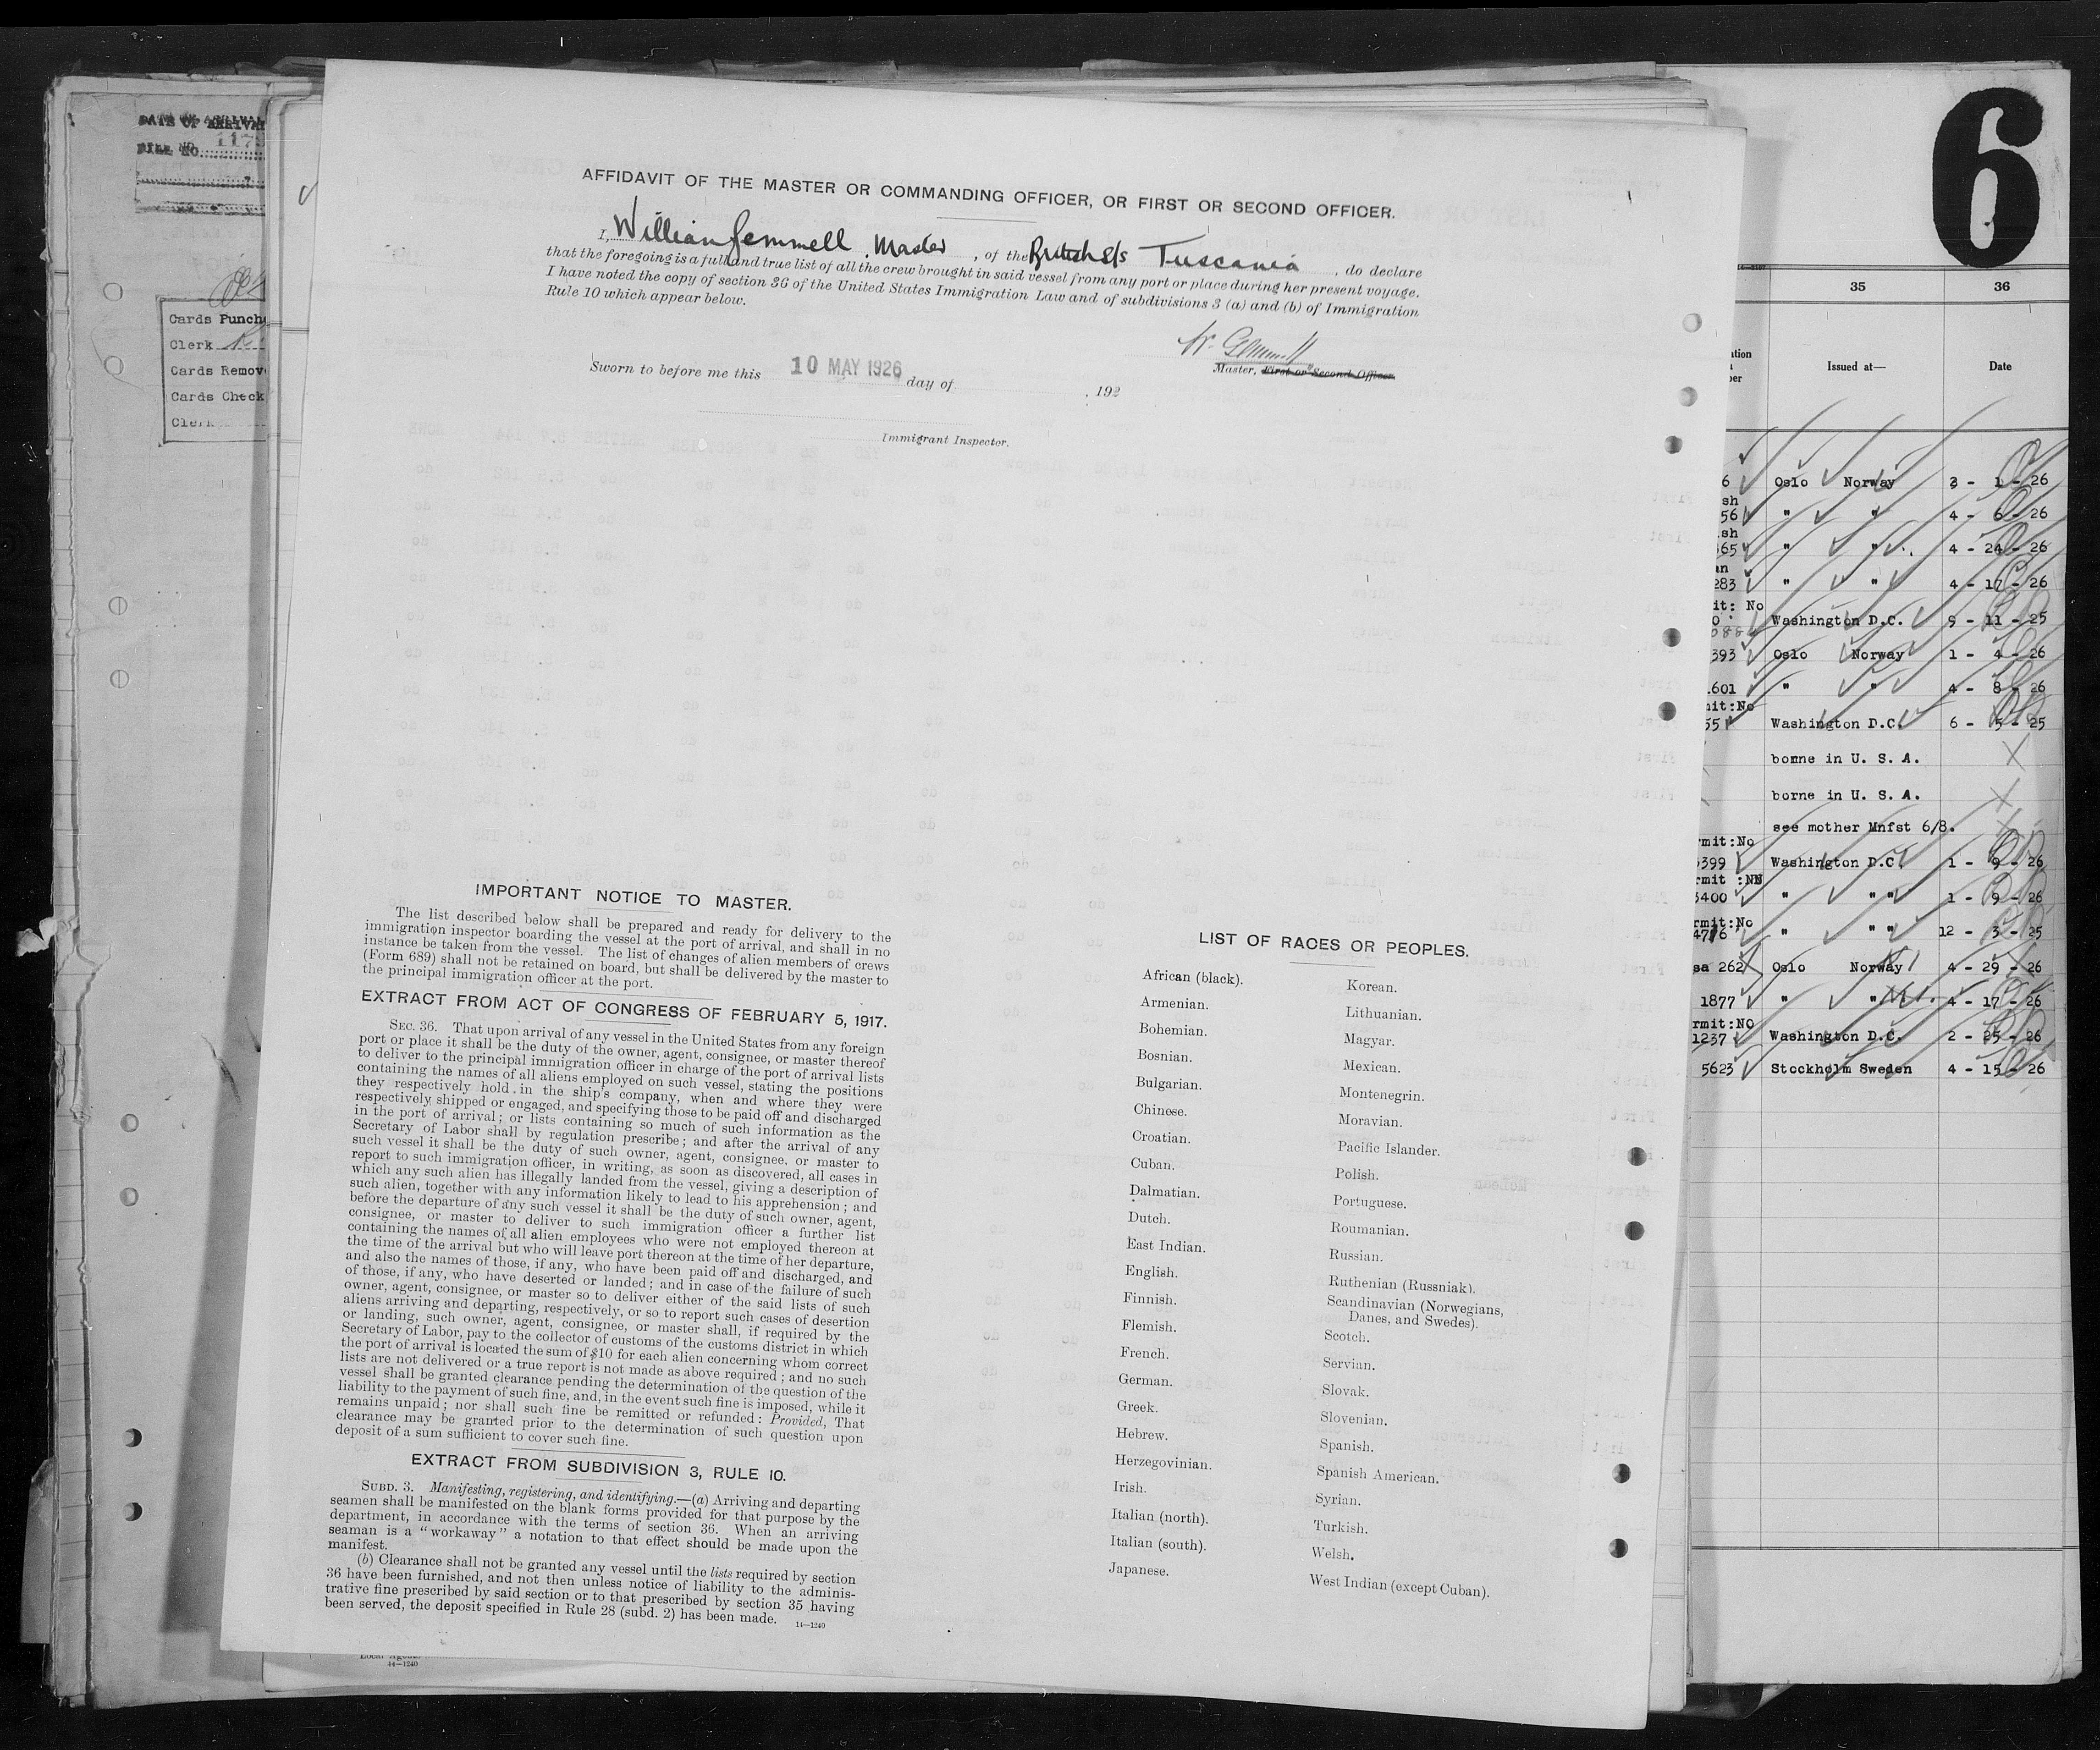 DATE OF ARRIVAL
FILE NO. 117
Cards Punch
Clerk
Cards Remov
Cards Check
Clerk
AFFIDAVIT OF THE MASTER OR COMMANDING OFFICER, OR FIRST OR SECOND OFFICER.
I, William Gemmell, Master, of the British S/s Tuscania, do declare
that the foregoing is a full and true list of all the crew brought in said vessel from any port or place during her present voyage.
I have noted the copy of section 36 of the United States Immigration Law and of subdivisions 3 (a) and (b) of Immigration
Rule 10 which appear below.
W. Gemmell
Master, First or Second Officer.
Sworn to before me this 10 MAY 1926 day of , 192
Immigrant Inspector.
IMPORTANT NOTICE TO MASTER.
The list described below shall be prepared and ready for delivery to the
immigration inspector boarding the vessel at the port of arrival, and shall in no
instance be taken from the vessel. The list of changes of alien members of crews
(Form 689) shall not be retained on board, but shall be delivered by the master to
the principal immigration officer at the port.
EXTRACT FROM ACT OF CONGRESS OF FEBRUARY 5, 1917.
SEC. 36. That upon arrival of any vessel in the United States from any foreign
port or place it shall be the duty of the owner, agent, consignee, or master thereof
to deliver to the principal immigration officer in charge of the port of arrival lists
containing the names of all aliens employed on such vessel, stating the positions
they respectively hold in the ship's company, when and where they were
respectively shipped or engaged, and specifying those to be paid off and discharged
in the port of arrival; or lists containing so much of such information as the
Secretary of Labor shall by regulation prescribe; and after the arrival of any
such vessel it shall be the duty of such owner, agent, consignee, or master to
report to such immigration officer, in writing, as soon as discovered, all cases in
which any such alien has illegally landed from the vessel, giving a description of
such alien, together with any information likely to lead to his apprehension; and
before the departure of any such vessel it shall be the duty of such owner, agent,
consignee, or master to deliver to such immigration officer a further list
containing the names of all alien employees who were not employed thereon at
the time of the arrival but who will leave port thereon at the time of her departure,
and also the names of those, if any, who have been paid off and discharged, and
of those, if any, who have deserted or landed; and in case of the failure of such
owner, agent, consignee, or master so to deliver either of the said lists of such
aliens arriving and departing, respectively, or so to report such cases of desertion
or landing, such owner, agent, consignee, or master shall, if required by the
Secretary of Labor, pay to the collector of customs of the customs district in which
the port of arrival is located the sum of $10 for each alien concerning whom correct
lists are not delivered or a true report is not made as above required; and no such
vessel shall be granted clearance pending the determination of the question of the
liability to the payment of such fine, and, in the event such fine is imposed, while it
remains unpaid; nor shall such fine be remitted or refunded: Provided, That
clearance may be granted prior to the determination of such question upon
deposit of a sum sufficient to cover such fine.
EXTRACT FROM SUBDIVISION 3, RULE 10.
SUBD. 3. Manifesting, registering, and identifying.—(a) Arriving and departing
seamen shall be manifested on the blank forms provided for that purpose by the
department, in accordance with the terms of section 36. When an arriving
seaman is a "workaway" a notation to that effect should be made upon the
manifest.
(b) Clearance shall not be granted any vessel until the lists required by section
36 have been furnished, and not then unless notice of liability to the adminis-
trative fine prescribed by said section or to that prescribed by section 35 having
been served, the deposit specified in Rule 28 (subd. 2) has been made.
14—1240
LIST OF RACES OR PEOPLES.
African (black).
Armenian.
Bohemian.
Bosnian.
Bulgarian.
Chinese.
Croatian.
Cuban.
Dalmatian.
Dutch.
East Indian.
English.
Finnish.
Flemish.
French.
German.
Greek.
Hebrew.
Herzegovinian.
Irish.
Italian (north).
Italian (south).
Japanese.
Korean.
Lithuanian.
Magyar.
Mexican.
Montenegrin.
Moravian.
Pacific Islander.
Polish.
Portuguese.
Roumanian.
Russian.
Ruthenian (Russniak).
Scandinavian (Norwegians,
Danes, and Swedes).
Scotch.
Servian.
Slovak.
Slovenian.
Spanish.
Spanish American.
Syrian.
Turkish.
Welsh.
West Indian (except Cuban).
14—1240
6
35 36
Issued at— Date
6 Oslo Norway 3 - 1 - 26
sh
56 " " 4 - 6 - 26
sh
65 " " 4 - 24 - 26
an
283 " " 4 - 17 - 26
it: No
Washington D.C. 9 - 11 - 25
393 Oslo Norway 1 - 4 - 26
601 " " 4 - 8 - 26
mit:No
55 Washington D.C. 6 - 5 - 25
borne in U. S. A.
borne in U. S. A.
see mother Mnfst 6/8.
rmit:No
399 Washington D.C. 1 - 9 - 26
rmit :NN
5400 " " " 1 - 9 - 26
rmit:No
4776 " " " 12 - 3 - 25
sa 262 Oslo Norway 4 - 29 - 26
1877 " " 4 - 17 - 26
rmit:NO
1237 Washington D.C. 2 - 25 - 26
5623 Stockholm Sweden 4 - 15 - 26